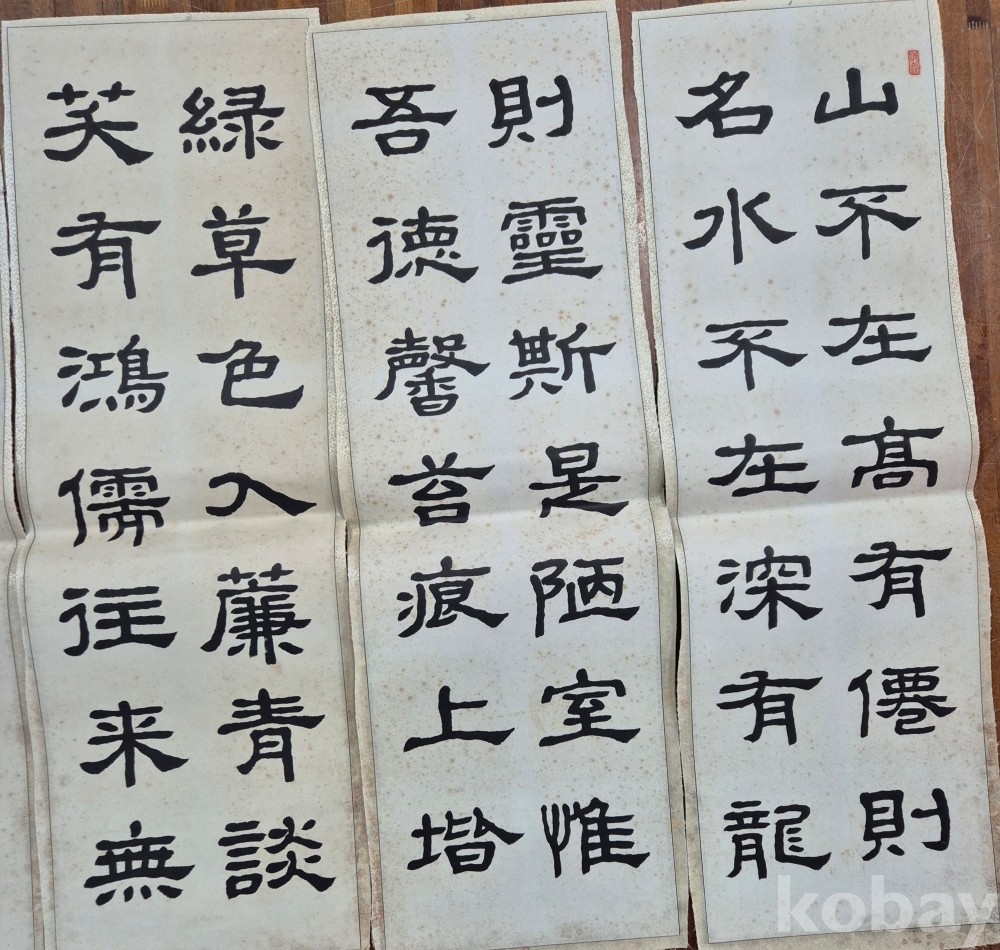 山不在高有僊則
名水不在深有龍
則靈斯是陋室惟
吾德馨苔痕上堦
綠草色入簾青談
笑有鴻儒往来無
kobay